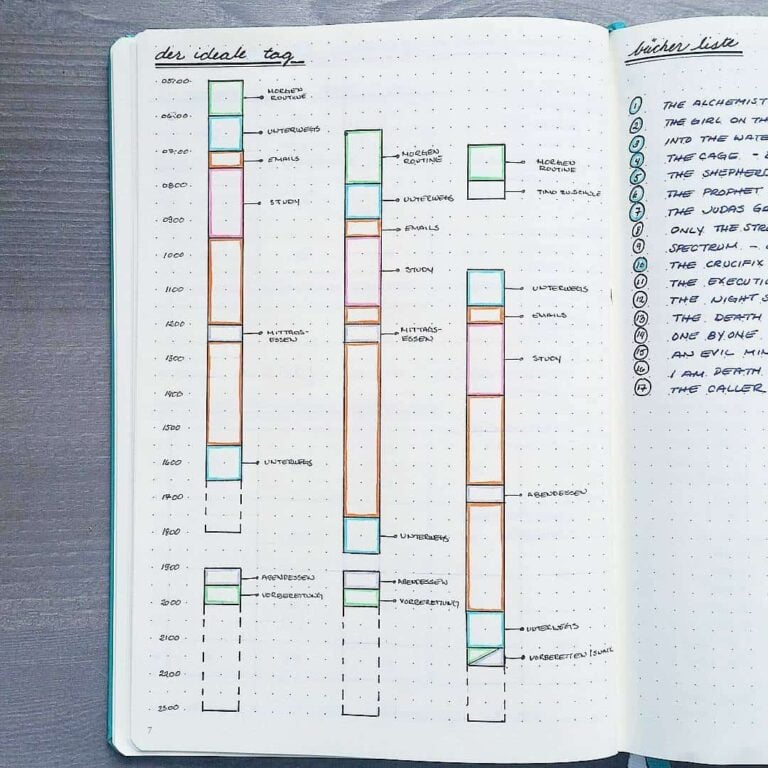 der ideale tag
05:00
06:00
07:00
0800
0900
1000
1100
1200
1300
1400
1500
1600
1700
1800
1900
2000
2100
2200
2300
MORGEN
ROUTINE
UNTERWEGS
EMAILS
STUDY
MITTAGS-
ESSEN
UNTERWEGS
ABENDESSEN
VORBEREITUNG
MORGEN
ROUTINE
UNTERWEGS
EMAILS
STUDY
MITTAGS-
ESSEN
UNTERWEGS
ABENDESSEN
VORBEREITUNG
MORGEN
ROUTINE
TIMO ZU SCHULE
UNTERWEGS
EMAILS
STUDY
ABENDESSEN
UNTERWEGS
VORBEREITEN /
7
bücher liste
1 THE ALCHEMIST
2 THE GIRL ON
3 INTO THE WATE
4 THE CAGE -
5 THE SHEPHERD
6 THE PROPHET
7 THE JUDAS
8 ONLY THE
9 SPECTRUM -
10 THE CRUCIFIX
11 THE EXECUTI
12 THE NIGHT
13 THE DEATH
14 ONE BY ONE
15 AN EVIL MIN
16 I AM DEATH
17 THE CALLER